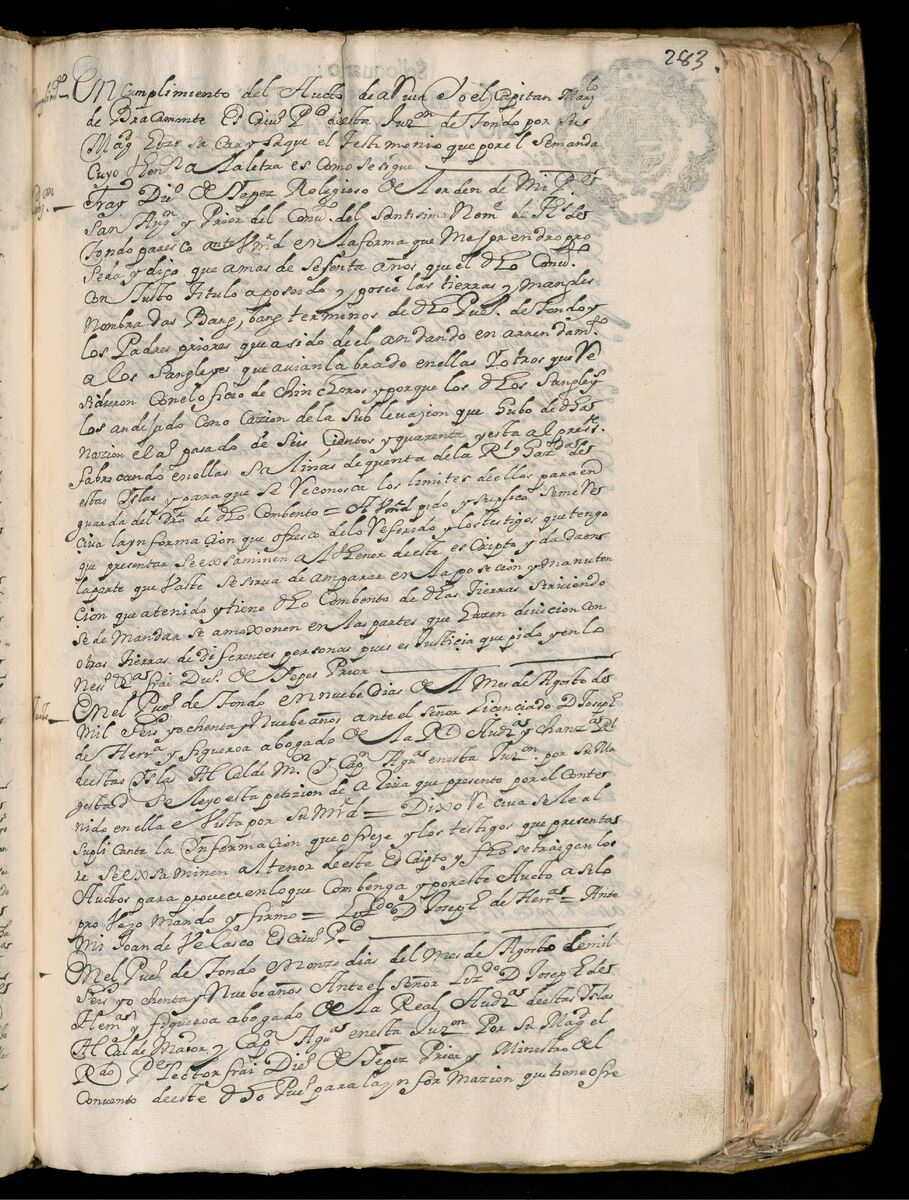 283
En Cumplimiento del Aucto de aRiua Yo el Capitan Marzlo
de Bracamonte Escriuo Pco deesta Jurzon de Tondo por su
Magd hize sacar y saque el Testimonio que por el se manda
Cuyo thenor a la letra es como se sigue
Fray Diego de Yepez Religioso de la orden de Mi Pe
San Augn y Prior del Convto del santisimo Nome de Jhs de
Tondo paresco ante Vmrd en la forma que mejor en dro pro
seda y digo que a mas de sesenta años que el dho Convto
con Justo titulo a poseido y posee las tierras y mangles
Nombradas Bang, bang terminos de dho Pueo de Tondo y
los Padres priores que a sido de el an dando en arrendamto
a los Sangleyes que avian labrado en ellas Y otros que se
siruieron con el oficio de chincheros y porque los dhos Sangleys
los an dejado con ocazion de la sublevazion que hubo de dha
Nazion el ao pasado de seis cientos y quarenta y esta al preste
fabrocando en ellas salinas de quenta de la Rl haza de
estas Yslas y para que se Reconosca los limites de ellos para en
guarda del dro de dho Combento = A Vmd pido y supco se me Res
ciua la ynformacion que ofresco de lo Referido y los testigos que tengo
que presentar se exsaminen a el thenor de este escripto y dada en
la parte que baste se sirua de amparar en la posecion y manuten
cion que a tenido y tiene dho Combento de dhas Tierras siruiendo
se de mandar se amoxonen en las partes que hazen diuicion con
otras tierras de diferentes personas pues es Justicia que pido y en lo
Neso &a frai Diego de Yepes Prior
Aucto En el Pueo de Tondo en nuebe dias de el Mes de Agosto de
mil seis y ochenta y Nuebe años ante el señor Licenciado D Joseph
de Herra y figueroa abogado de la Rl Audza y chanza Rl
de estas Yslas Alcalde Mor y Capn A guerra en esta Juron por su Ma
gestad se leyo esta petizion de aRiua que presento por el Conte
nido en ella e Vista por su Mrd = Dixo Reciua se le al
suplicante la Informacion que ofreze y los testigos que presenta
re se exsaminen a el tenor de este Escripto y fho se traigan los
Auctos para proveer en lo que combenga y por este Aucto asi lo
proveyo mando y firmo = Lizdo D Joseph de Herra = Ante
Mi Joan de Velasco Escriuo Pco
En el Pueo de Tondo en onze dias del Mes de Agosto de mil
seis y ochenta y Nuebe años Ante el Señor Lizdo D Joseph de
Herra y figueroa abogado de la Real Audza de estas Yslas
Alcalde Maior y Capn A guerra en esta Juron Por su Magd el
Rdo Pe Lector frai Diego de Yepez Prior y Ministro de el
Convento de este dho Pueo para la ynformazion que tiene ofre